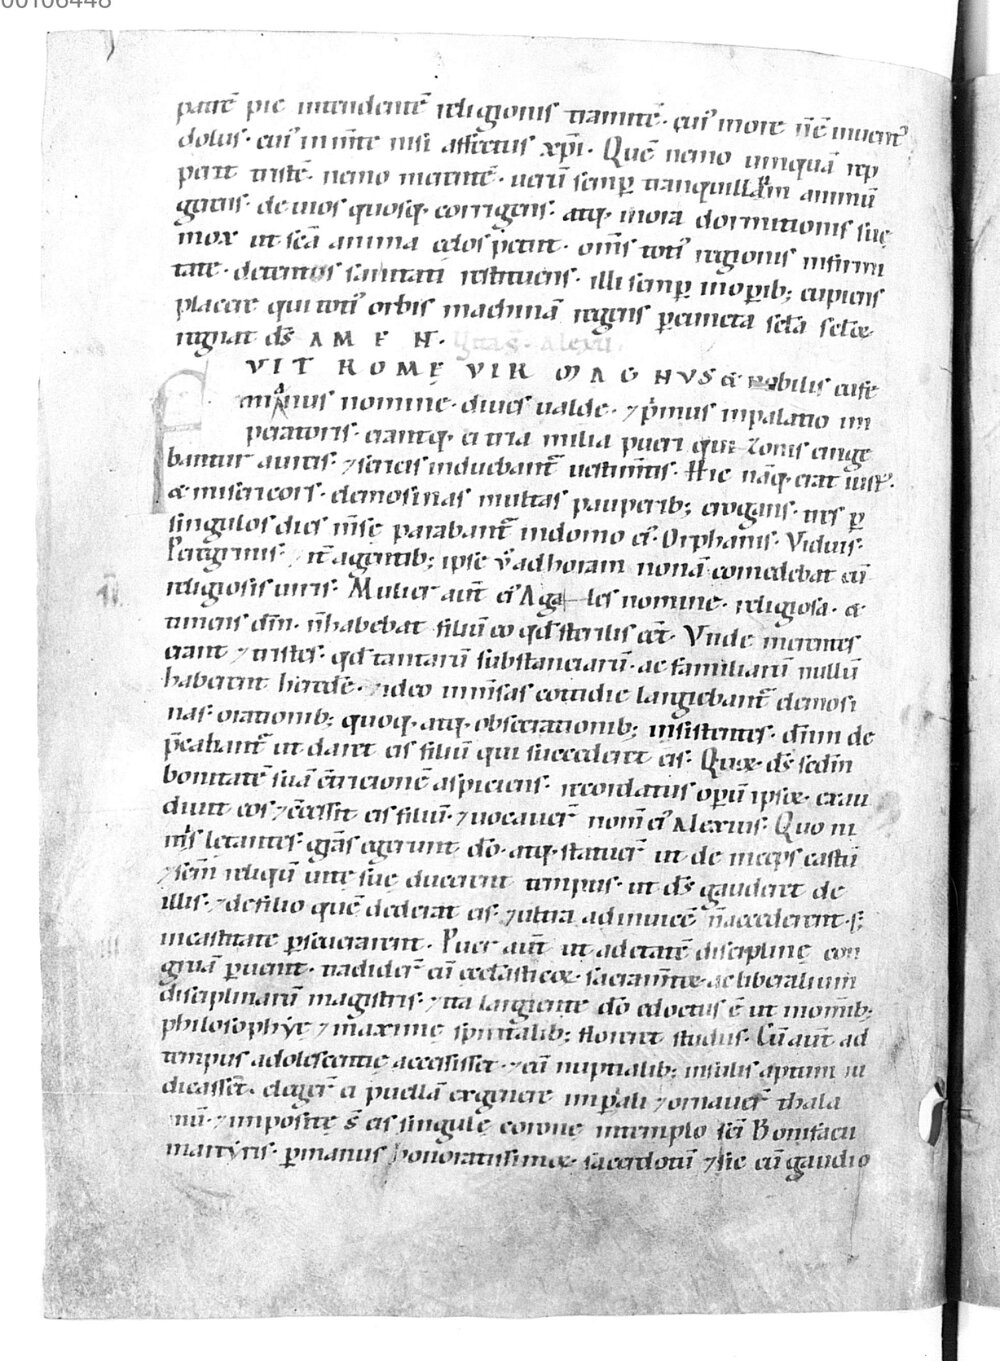 00106448
patrē pie intendentē religionis tramitē. cui' more ñē inuent'
dolus. cui' in m̄te nisi affectus xp̄i. Quē nemo umquā rep
perit tristē. nemo merentē. uerū semp tranquillum animū
gerens. deuios quosq. corrigens. atq. mora dormitionis suę
mox ut sc̄a anima cęlos petiit. om̄s toti' regionis infirmi
tate. detentos sanitati restituens. illi semp in opib; cupiens
placere qui toti' orbis machinā regens p cuncta sc̄la sc̄loꝝ
regnat d̄s A M E N. Vita S. Alexii.
FVIT ROMĘ VIR MAGNVS & nobilis eufe
mianus nomine. diues ualde. ⁊ p'mus in palatio im
peratoris. erantq. ei tria milia pueri qui zonis cinge
bantur aureis. ⁊ sericis induebant̄ uestim̄tis. Hic nāq. erat iust'.
& misericors. elemosinas multas pauperib; erogans. tres p
singulos dies m̄sę parabant̄ in domo ei'. Orphanis. Viduis.
Peregrinis. it̄ agentib; ipse ṽ ad horam nonā comedebat cū
religiosis uiris. Mulier aut̄ ei' Aga les nomine. religiosa. &
timens dm̄. ñ habebat filiū eo qd̄ sterilis eēt. Vnde merentes
erant ⁊ tristes. qd̄ tantarū substanciarū. ac familiarū nullū
haberent heredē. ⁊ ideo inm̄sas cottidie largiebant̄ elemosi
nas. orationib; quoq. atq. obsecrationib; insistentes. dn̄m de
p̄cabant̄ ut daret eis filiū qui succederet eis. Quoꝝ. d̄s sedm̄
bonitatē suā c̄tricionē aspiciens. recordatus opū ipsoꝝ. exau
diuit eos ⁊ c̄cessit eis filiū. ⁊ uocauer̄ nom̄ ei' Alexius. Quo ni
mis letantes. gr̄as egerunt dō. atq. statuer̄ ut deinceps castū
⁊ sc̄m reliquū uitę suę ducerent tempus. ut d̄s gauderet de
illis. ⁊ de filio quē dederat eis. ⁊ ultra adinuicē ñ accederent. s;
in castitate pseuerarent. Puer aut̄ ut ad etatē disciplinę con
gruā puenit. tradider̄ eū ęcclasticoꝝ. sacram̄toꝝ. ac liberalium
disciplinarū magistris. ⁊ ita largiente dō edoctus ē ut in om̄ib;
philosophýę ⁊ maximę spiritalib; floreret studiis. Cū aut̄ ad
tempus adolescentię accessisset. ⁊ eū nuptialib; infulis aptum iu
dicasset̄. eleger̄ ei puellā ex genere imp̄ali ⁊ ornauer̄ thala
mū. ⁊ impositę s̄ eis singulę coronę in templo sc̄i Bonifacii
martýris. p manus honoratissimoꝝ. sacerdotū ⁊ sic cū gaudio